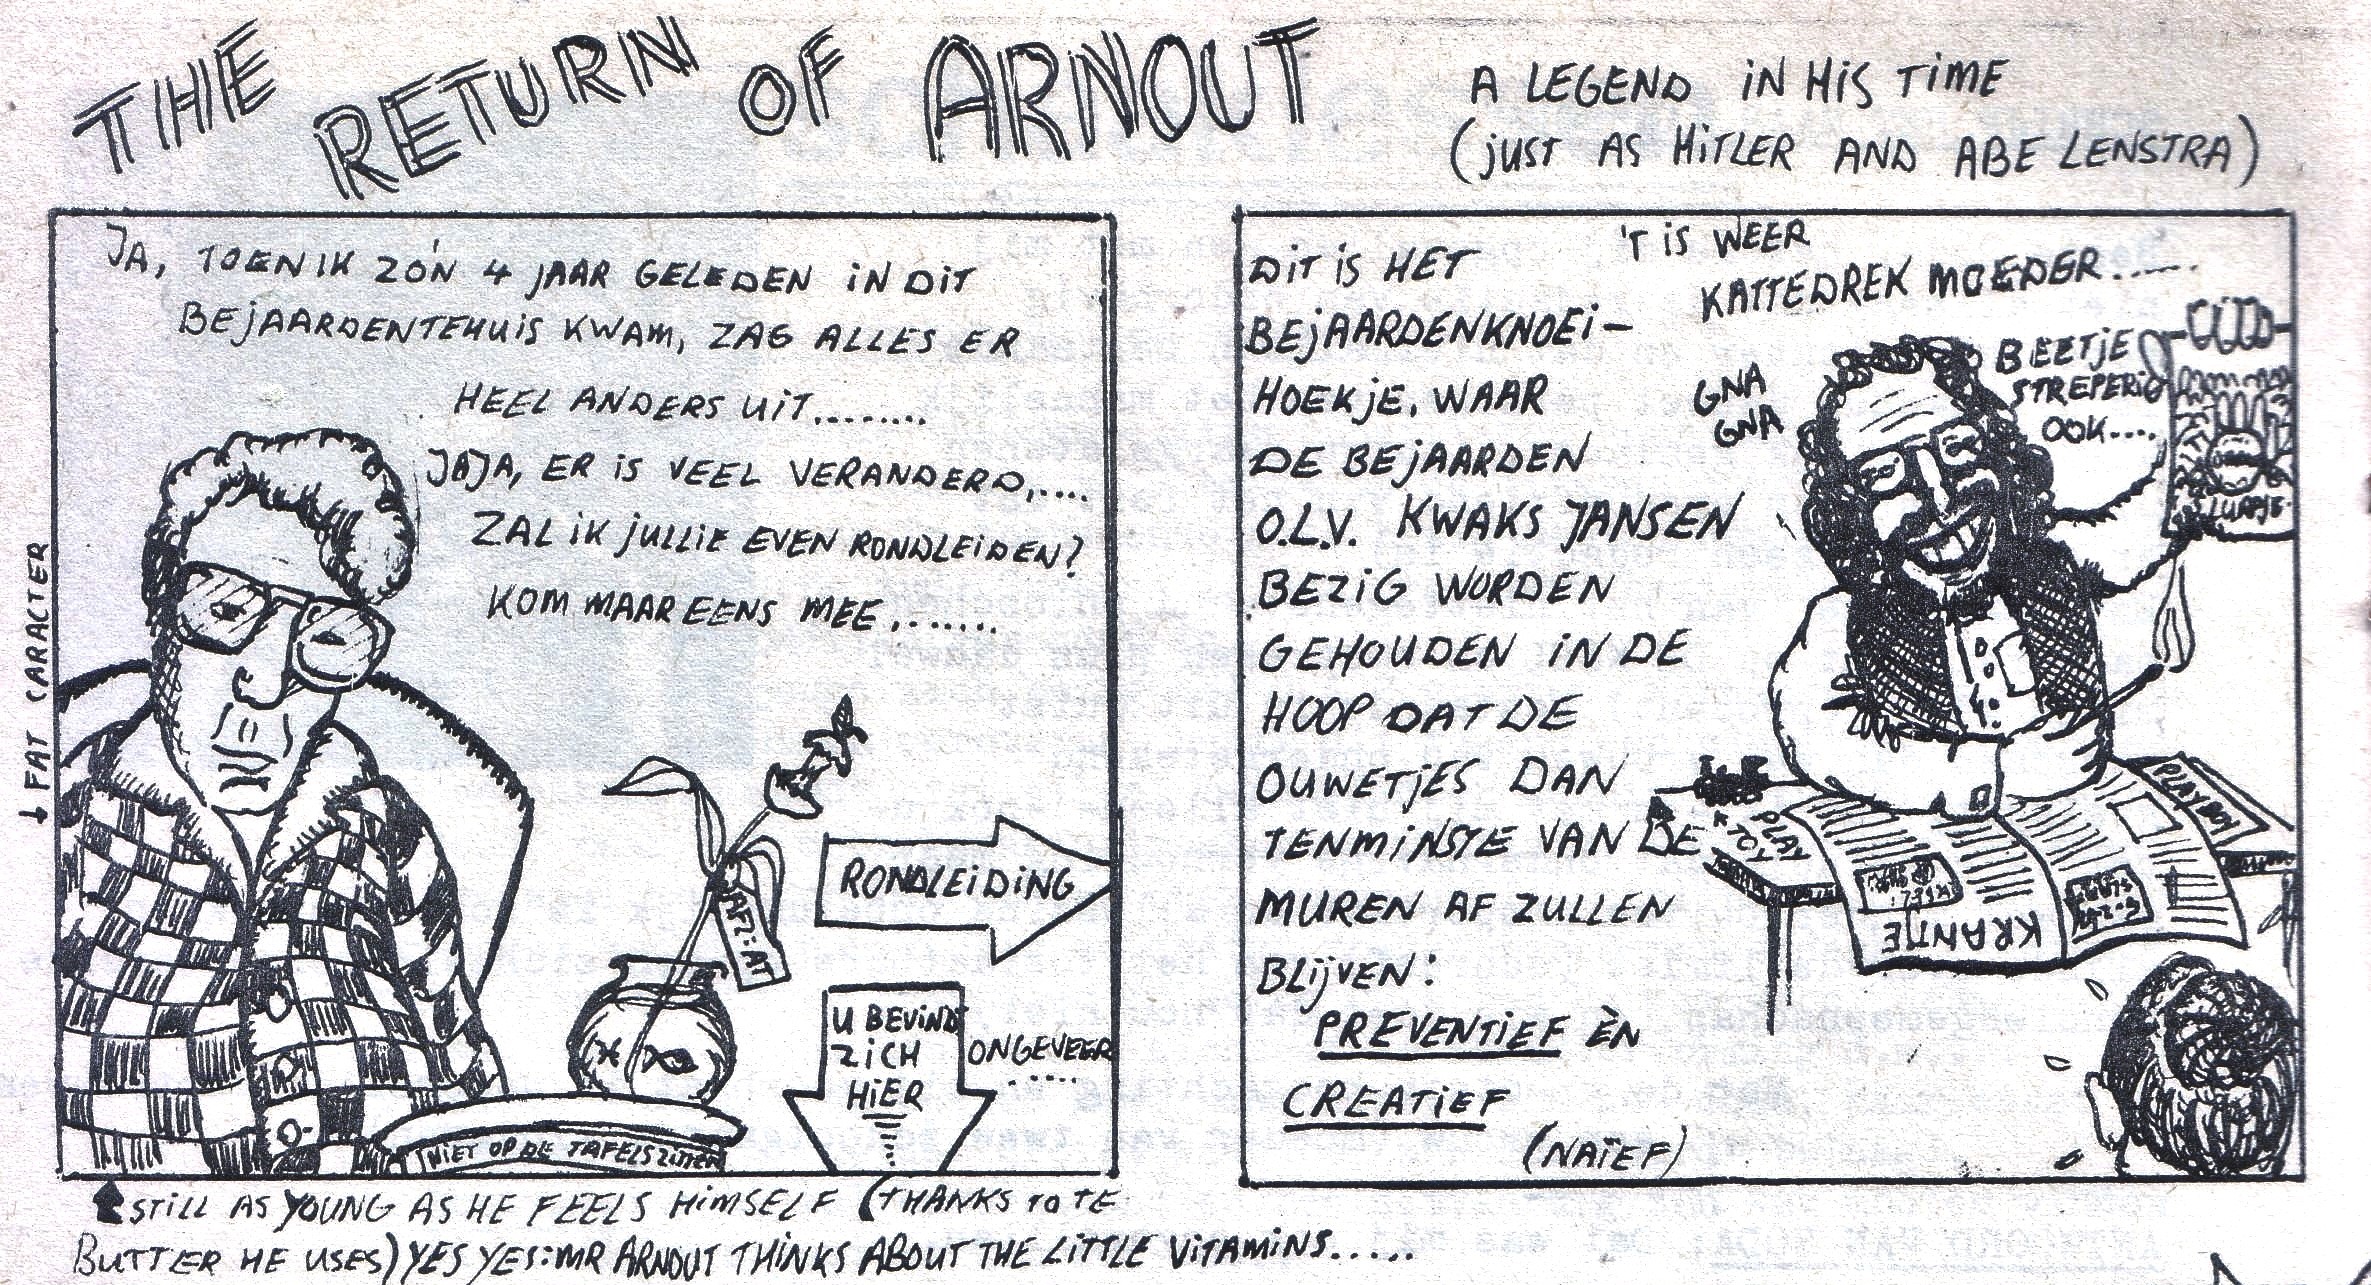 THE RETURN OF ARNOUT
A LEGEND IN HIS TIME
(JUST AS HITLER AND ABE LENSTRA)
JA, TOEN IK ZO'N 4 JAAR GELEDEN IN DIT
BEJAARDENTEHUIS KWAM, ZAG ALLES ER
HEEL ANDERS UIT........
JAJA, ER IS VEEL VERANDERD,....
ZAL IK JULLIE EVEN RONDLEIDEN?
KOM MAAR EENS MEE,......
FAT CARACTER
AFZ: AT
RONDLEIDING
U BEVIND
ZICH
HIER
ONGEVEER
.....
NIET OP DE TAFEL SZITTEN
STILL AS YOUNG AS HE FEELS HIMSELF (THANKS TO TE
BUTTER HE USES) YES YES: MR ARNOUT THINKS ABOUT THE LITTLE VITAMINS.....
DIT IS HET
BEJAARDENKNOEI-
HOEKJE, WAAR
DE BEJAARDEN
O.L.V. KWAKS JANSEN
BEZIG WORDEN
GEHOUDEN IN DE
HOOP DAT DE
OUWETJES DAN
TENMINSTE VAN DE
MUREN AF ZULLEN
BLIJVEN:
PREVENTIEF ÈN
CREATIEF
(NAÏEF)
'T IS WEER
KATTEDREK MOEDER......
GNA
GNA
BEETJE
STREPERIG
OOK....
PLAY
TOY
PLAYBOY
KRANTJE